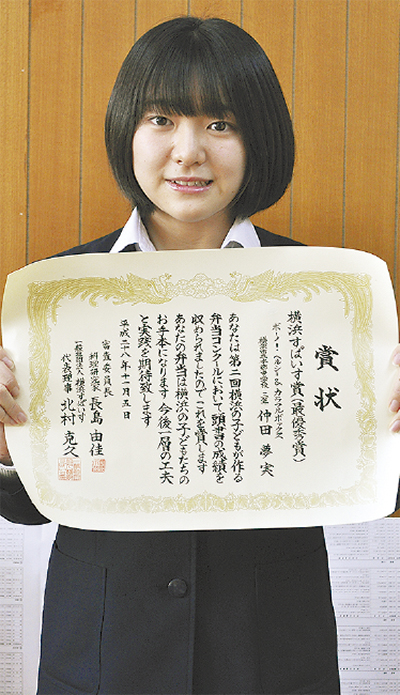 賞状
横浜すぱいす賞(最優秀賞)
ボーノ!ヘルシー&カラフルボックス
仲田 夢実
あなたは第二回横浜の子どもが作る
弁当コンクールにおいて頭書の成績を
収められましたのでこれを賞します
あなたの弁当は横浜の子どもたちの
お手本になります 今後一層の工夫
と実践を期待致します
平成二八年十一月五日
審査委員長
料理研究家 長島 由佳
一般社団法人 横浜すぱいす
代表理事 北村 克久